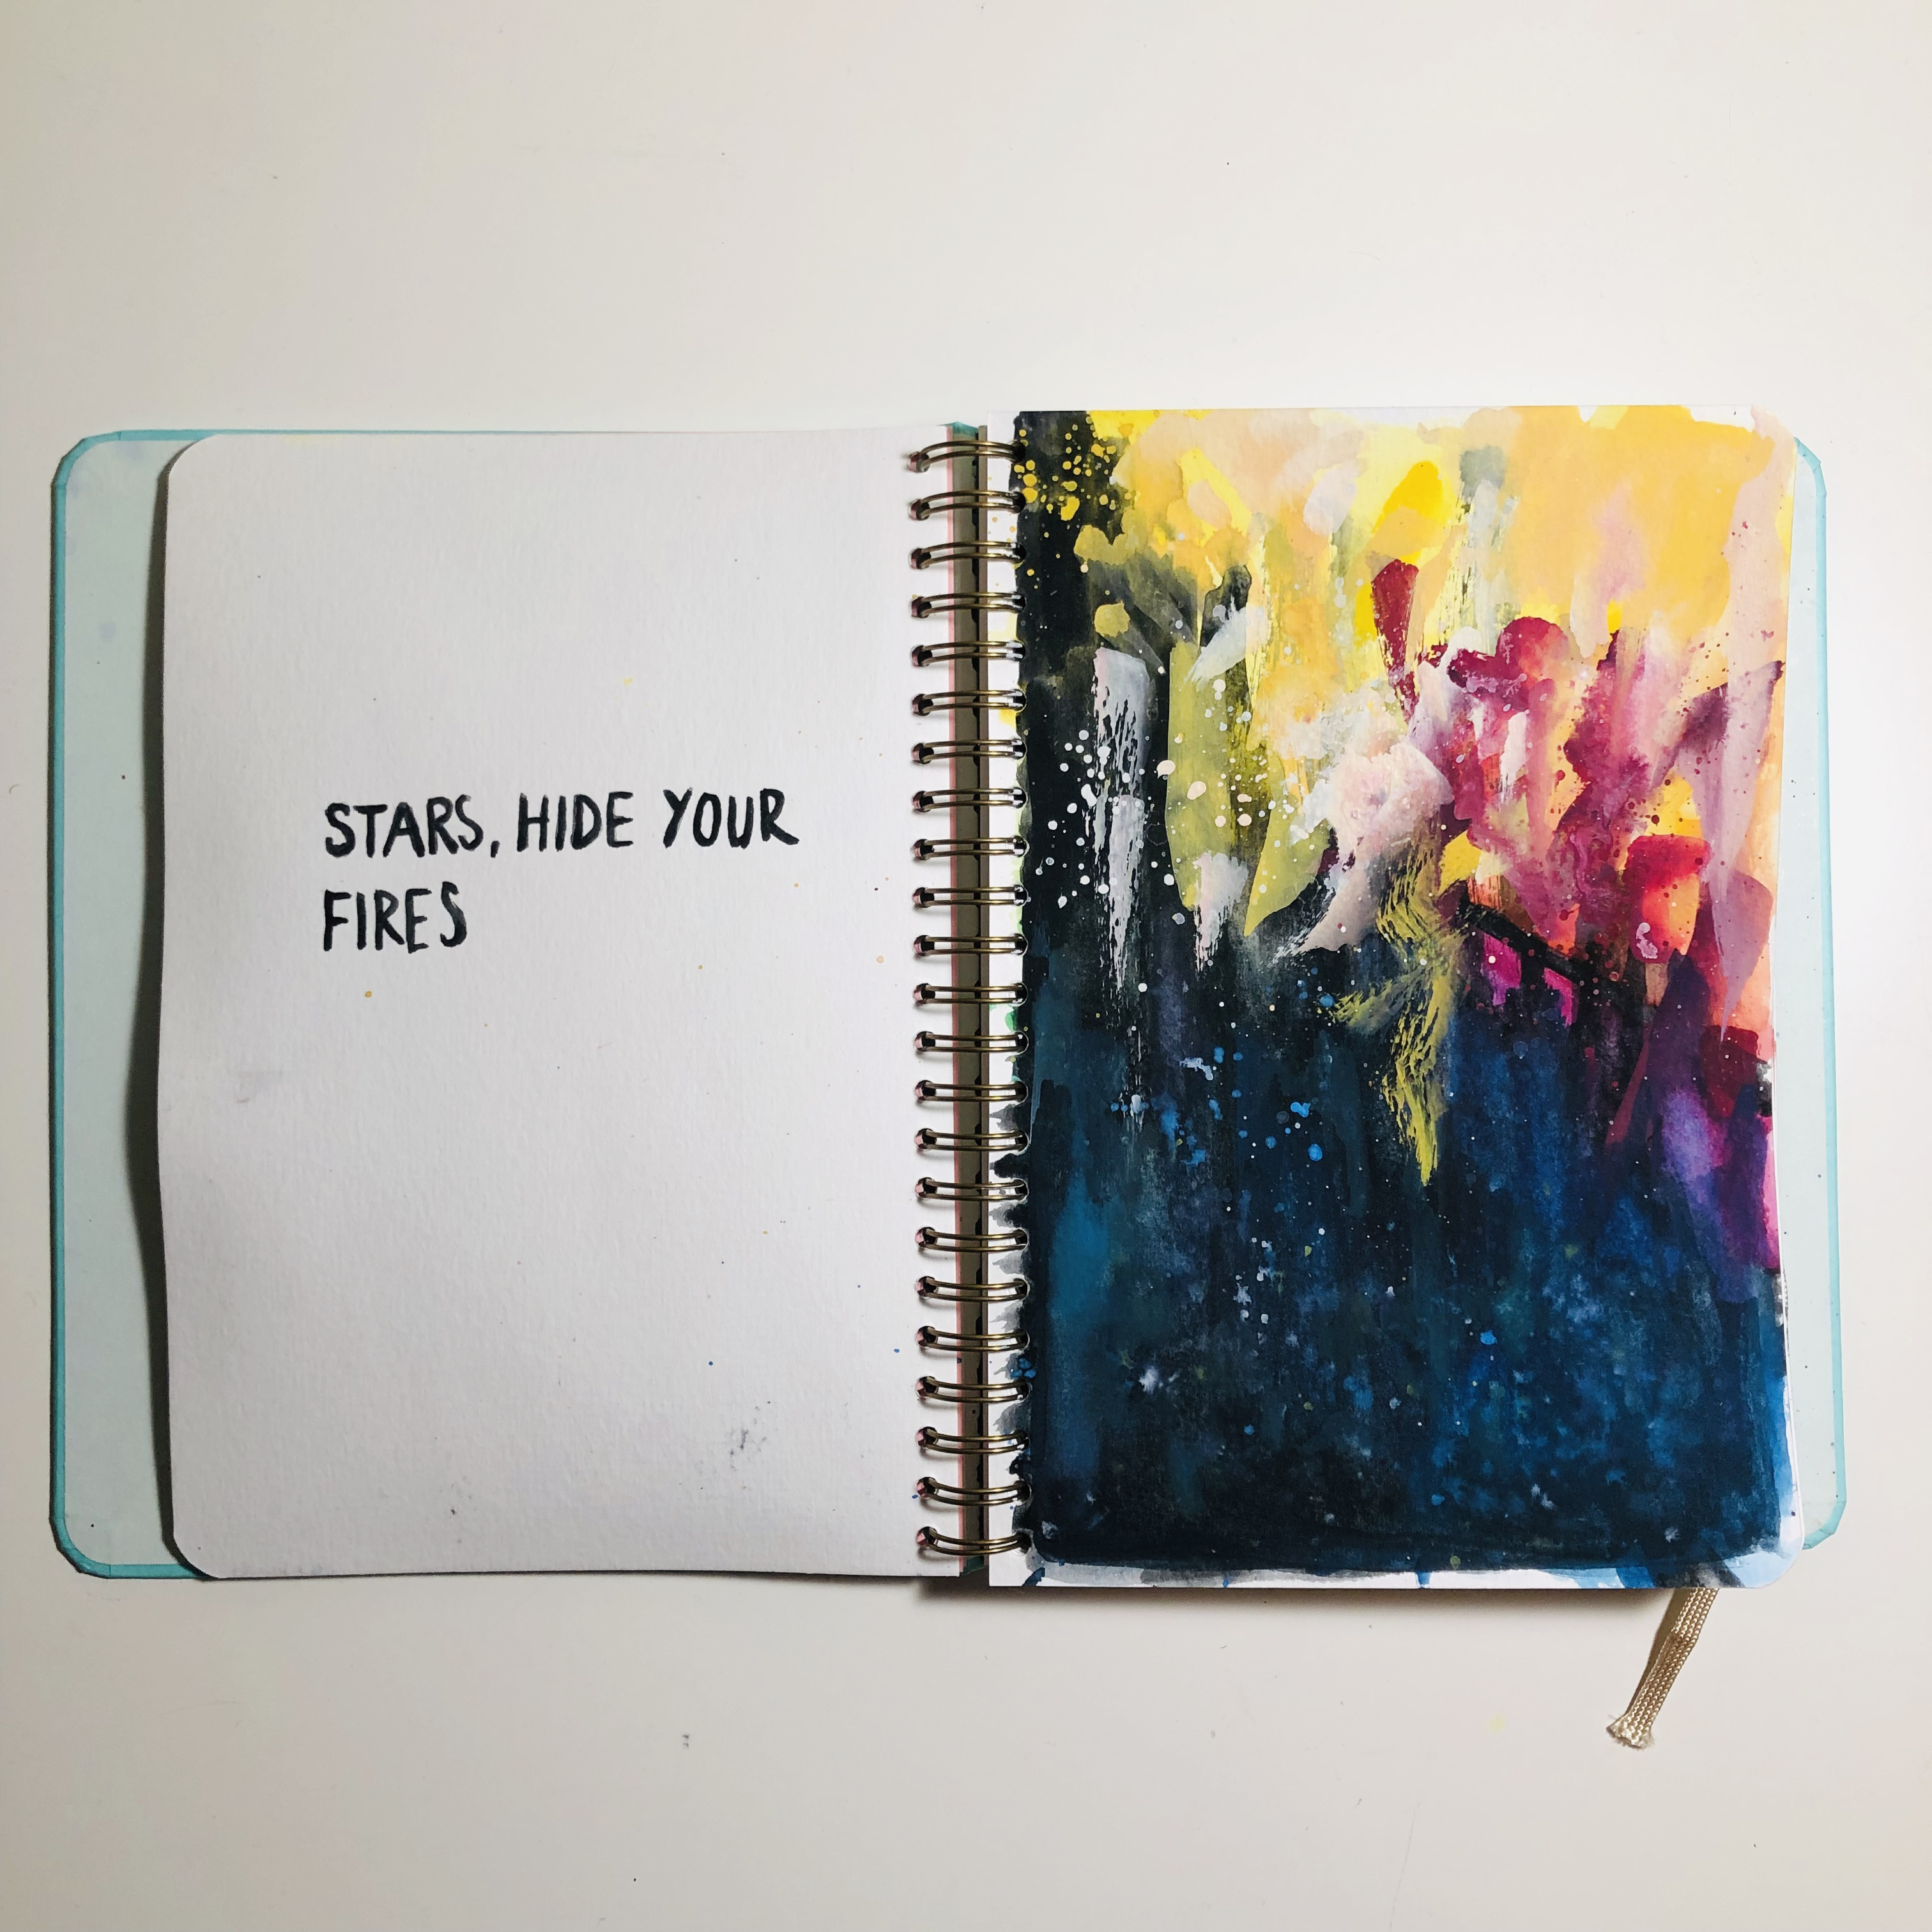 STARS, HIDE YOUR
FIRES